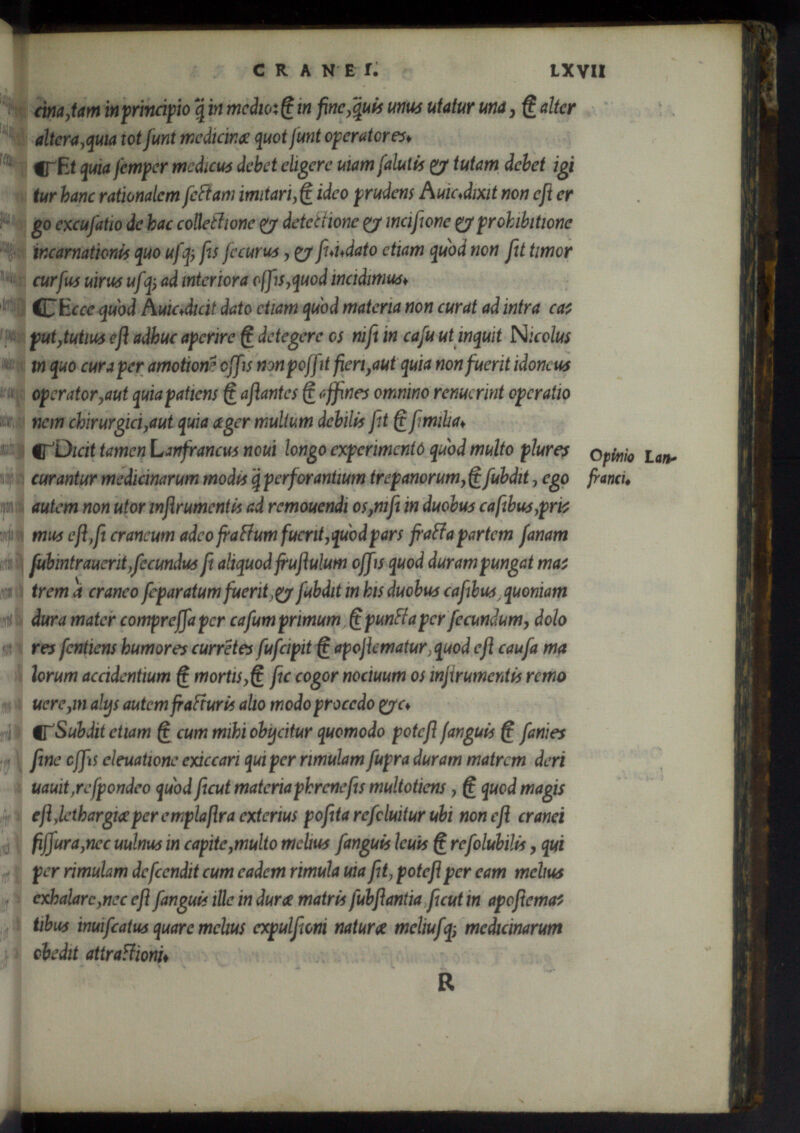 CRANEI. LXVII
cina,tam in principio q̃ in medio:& in fine,quis unus utatur una, & alter
altera,quia tot sunt medicinæ quot sunt operatores.
¶Et quia semper medicus debet eligere uiam salutis & tutam debet igi
tur hanc rationalem sectam imitari,& ideo prudens Auic.dixit non est er
go excusatio de hac collectione & detectione & incisione & prohibitione
incarnationis quo usq; sis securus, & si.i.dato etiam quòd non sit timor
cursus uirus usq; ad interiora ossis,quod incidimus.
¶Ecce quòd Auic.dicit dato etiam quòd materia non curat ad intra ca=
put,tutius est adhuc aperire & detegere os nisi in casu ut inquit Nicolus
in quo cura per amotionẽ ossis non possit fieri,aut quia non fuerit idoneus
operator,aut quia patiens & astantes & affines omnino renuerint operatio
nem chirurgici,aut quia æger multum debilis sit & similia.
¶Dicit tamen Lanfrancus noui longo experimento quòd multo plures
curantur medicinarum modis q̃ perforantium trepanorum,& subdit, ego
autem non utor instrumentis ad remouendi os,nisi in duobus casibus,pri=
mus est,si craneum adeo fractum fuerit,quòd pars fracta partem sanam
subintrauerit,secundus si aliquod frustulum ossis quod duram pungat ma=
trem à craneo separatum fuerit,& subdit in his duobus casibus, quoniam
dura mater compressa per casum primum & puncta per secundum, dolo
res sentiens humores currẽtes suscipit & apostematur, quod est causa ma
lorum accidentium & mortis,& sic cogor nociuum os instrumentis remo
uere,in alijs autem fracturis alio modo procedo &c.
¶Subdit etiam & cum mihi obijcitur quomodo potest sanguis & sanies
sine ossis eleuatione exiccari qui per rimulam supra duram matrem deri
uauit,respondeo quòd sicut materia phrenesis multotiens, & quod magis
est,lethargiæ per emplastra exterius posita resoluitur ubi non est cranei
fissura,nec uulnus in capite,multo melius sanguis leuis & resolubilis, qui
per rimulam descendit cum eadem rimula uia sit, potest per eam melius
exhalare,nec est sanguis ille in duræ matris substantia sicut in apostema=
tibus inuiscatus quare melius expulsioni naturæ meliusq; medicinarum
obedit attractioni.
R
Opinio Lan-
franci.